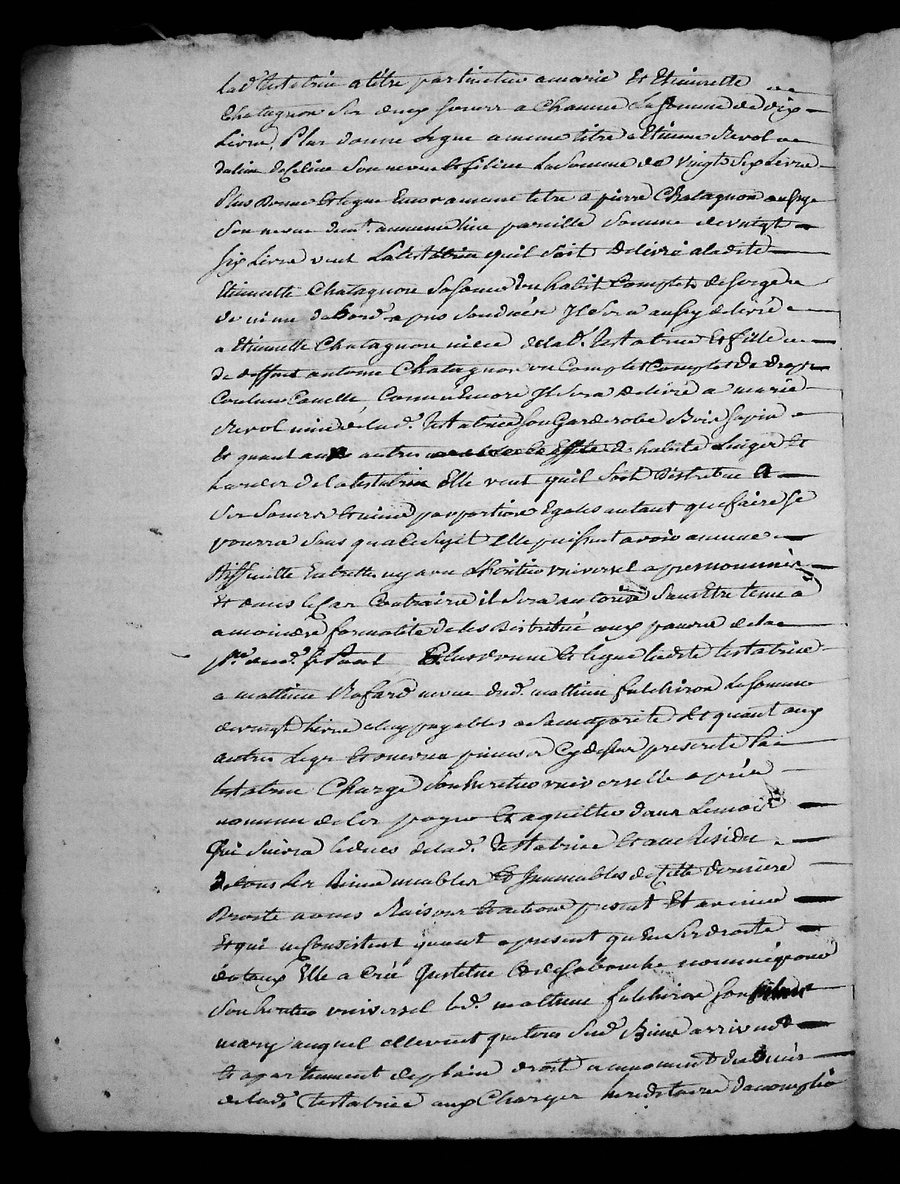 lad. testatrice a titre particulier a marie Et Etiennette
Chatagnon ses deux soeurs a Chacune la somme de dix
Livre, Plus donne Legue a meme titre a Etienne Revol
son neveu Et filieux La Somme de vingt Six Livre
Plus Donne Et legue Encor a meme titre a pierre Chatagnon aussy
Son neveu a meme titre pareille Somme de vingt
Six Livre veut La testatrice quil soit delivré a ladite
Etiennette Chatagnon sa soeur Un habit Complet de serge
apres son décès Il sera aussy delivré
a Etiennette Chatagnon niece de lad. Testatrice Et fille
de deffunt antoine Chatagnon un Complet de drap
Couleur Canelle Comme Encore Il sera delivré a marie
Revol niece de lad. Testatrice son Garderobe Bois sapin
Et quant aux autres habits Linges Et
hardes de la testatrice Elle veut quil soit Distribué a
ses soeurs Et niece par portion Egales autant que faire se
pourra sans qua ce sujet Elle puissent avoir aucune
difficulte Entrelles ny avec Lheritier universel apres nommé
Et dans le Cas Contraire il sera autorisé Sans Etre tenu a
a moindre formalite de les Distribué aux pauvre de la
Plus donne Et legue ladite testatrice
a mathieu neveu dud. mathieu fulchiron La somme
de vingt Livre a luy payables a sa majorite Et quant aux
autres Legs Et oeuvre pieuses Cy dessus prescrite la
testatrice Charge son heritier universelle apres
nommé de les payer Et aquitter dans Le mois
Qui suivra le deces de lad. Testatrice Et au Residu
de tous ses Biens meubles Et Immeubles de Cette derniere
Droits noms Raisons Et actions present Et avenir
Et qui ne Consistent quant a present quen ses droits
dotaux Elle a Créé Institué Et de sa bouche nommé pour
son heritier universel led. mathieu fulchiron son
mary auquel elle veut que tous sesd. Biens arrivent
Et apartiennent de plain droit au moment du deces
de lad. testatrice aux Charges hereditaire